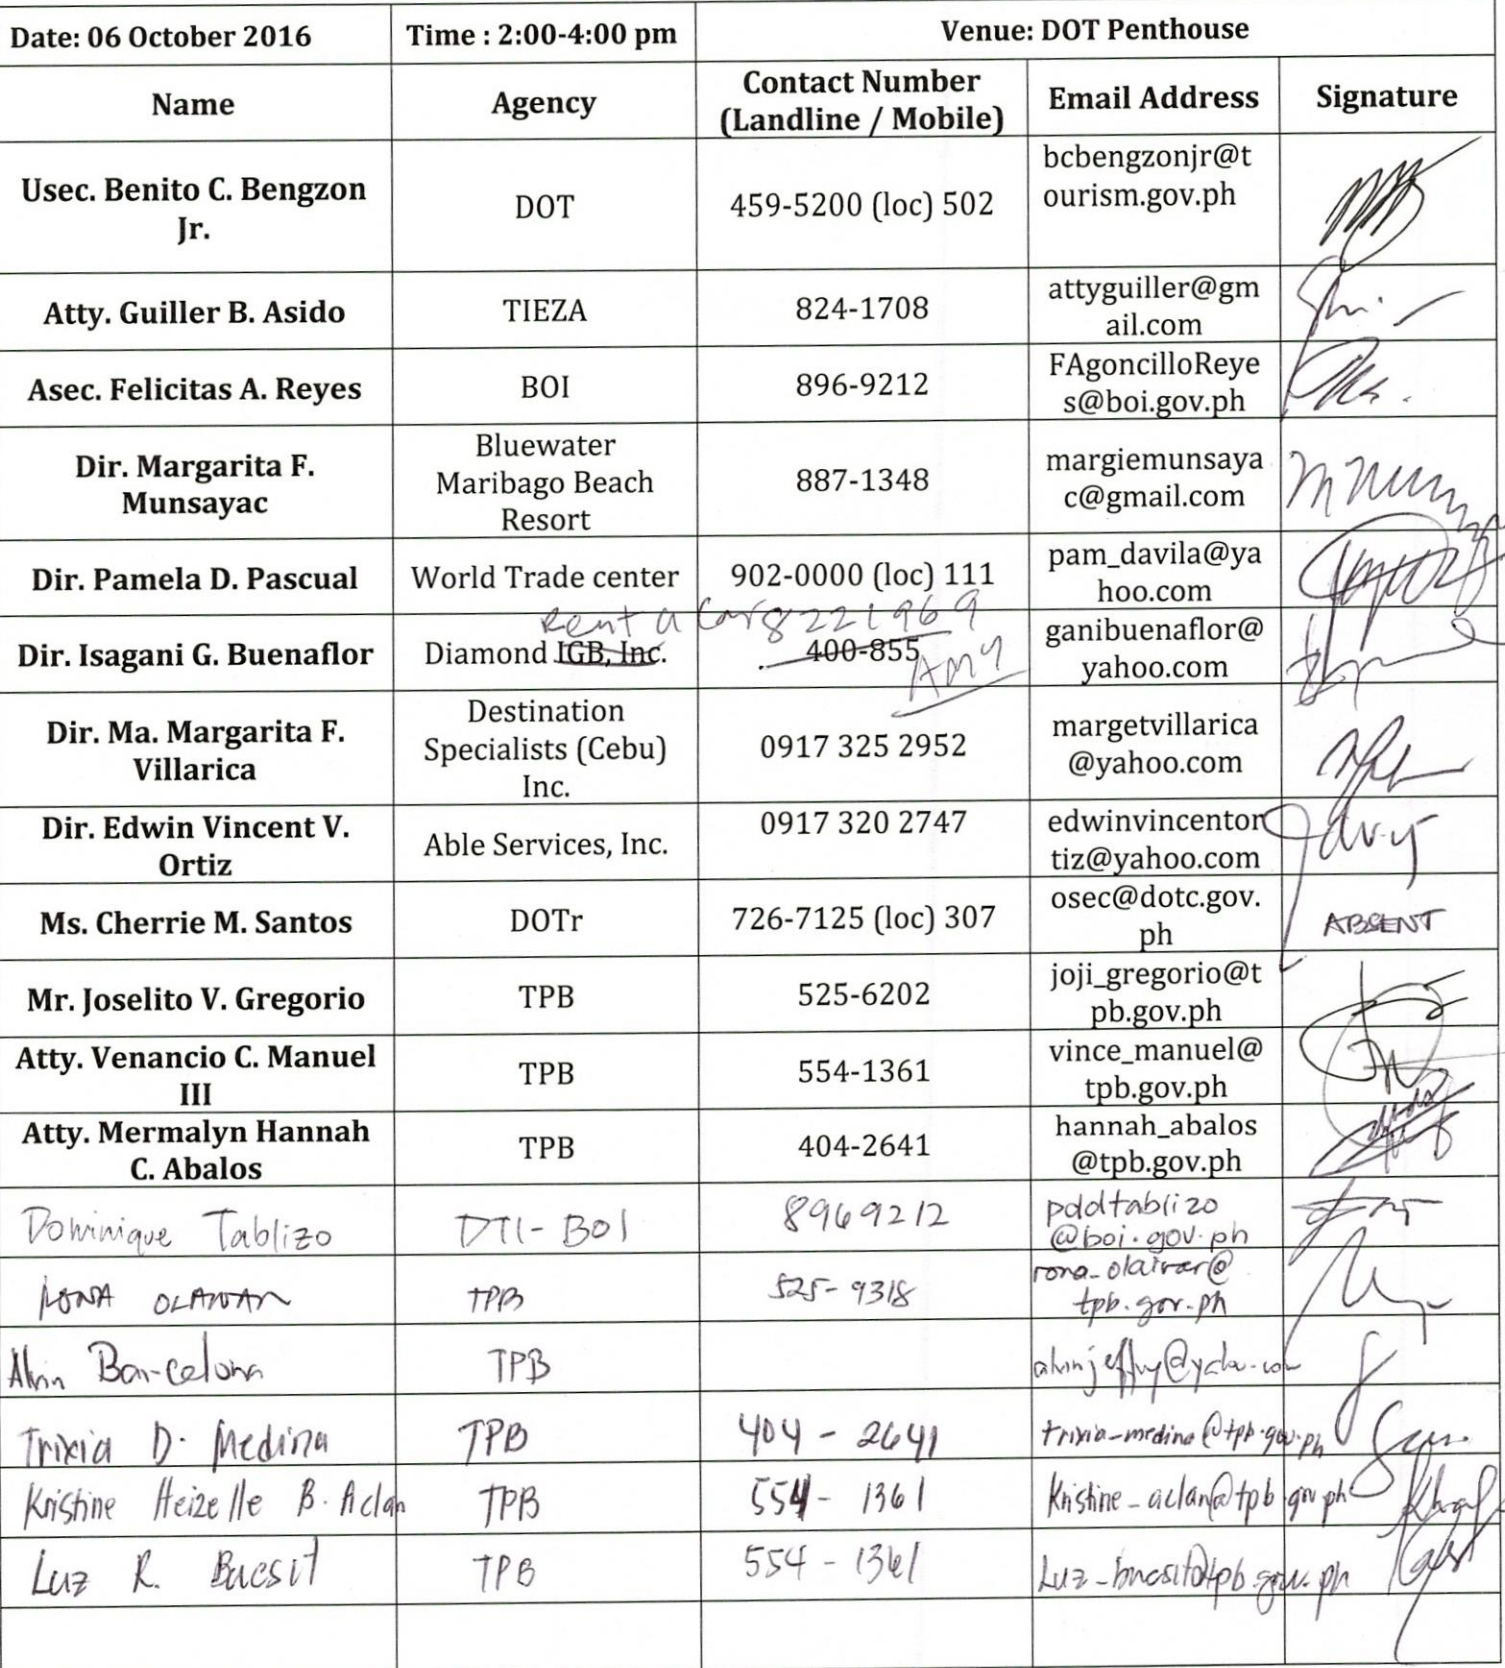 Date: 06 October 2016 Time : 2:00-4:00 pm Venue: DOT Penthouse
Name Agency Contact Number (Landline / Mobile) Email Address Signature
Usec. Benito C. Bengzon
Jr.
DOT
459-5200 (loc) 502
bcbengzonjr@t
ourism.gov.ph
Atty. Guiller B. Asido
TIEZA
824-1708
attyguiller@gm
ail.com
Asec. Felicitas A. Reyes
BOI
896-9212
FAgoncilloReye
s@boi.gov.ph
Dir. Margarita F.
Munsayac
Bluewater
Maribago Beach
Resort
887-1348
margiemunsaya
c@gmail.com
Dir. Pamela D. Pascual
World Trade center
902-0000 (loc) 111
pam_davila@ya
hoo.com
Dir. Isagani G. Buenaflor
Rent a Car
Diamond IGB, Inc.
8221969
400-855
AMY
ganibuenaflor@
yahoo.com
Dir. Ma. Margarita F.
Villarica
Destination
Specialists (Cebu)
Inc.
0917 325 2952
margetvillarica
@yahoo.com
Dir. Edwin Vincent V.
Ortiz
Able Services, Inc.
0917 320 2747
edwinvincentor
tiz@yahoo.com
Ms. Cherrie M. Santos
DOTr
726-7125 (loc) 307
osec@dotc.gov.
ph
ABSENT
Mr. Joselito V. Gregorio
TPB
525-6202
joji_gregorio@t
pb.gov.ph
Atty. Venancio C. Manuel
III
TPB
554-1361
vince_manuel@
tpb.gov.ph
Atty. Mermalyn Hannah
C. Abalos
TPB
404-2641
hannah_abalos
@tpb.gov.ph
Dominique Tablizo
DTI-BOI
8969212
pddtablizo
@boi.gov.ph
TPB
525-9318
tpb.gov.ph
Alvin Barcelona
TPB
Trixia D. Medina
TPB
404-2641
trixia-medina@tpb.gov.ph
Kristine Heizelle B. Aclan
TPB
554-1361
Kristine_aclan@tpb.gov.ph
Luz R. Bucsit
TPB
554-1361
Luz_bucsit@tpb.gov.ph